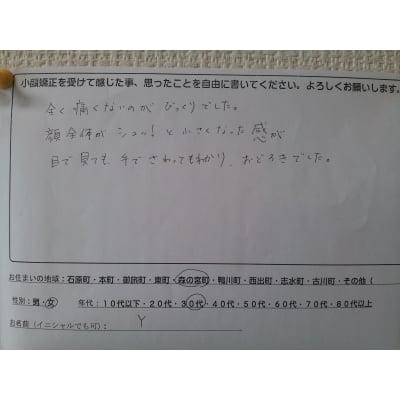 小顔矯正を受けて感じた事、思ったことを自由に書いてください。よろしくお願いします。
全く痛くないのがびっくりでした。
顔全体がシュッ!と小さくなった感が
目で見ても手でさわってもわかり、おどろきでした。
お住まいの地域:石原町・本町・御旅町・東町・森の宮町・鴨川町・西出町・志水町・古川町・その他(
性別:男・女 年代:10代以下・20代・30代・40代・50代・60代・70代・80代以上
お名前(イニシャルでも可): Y